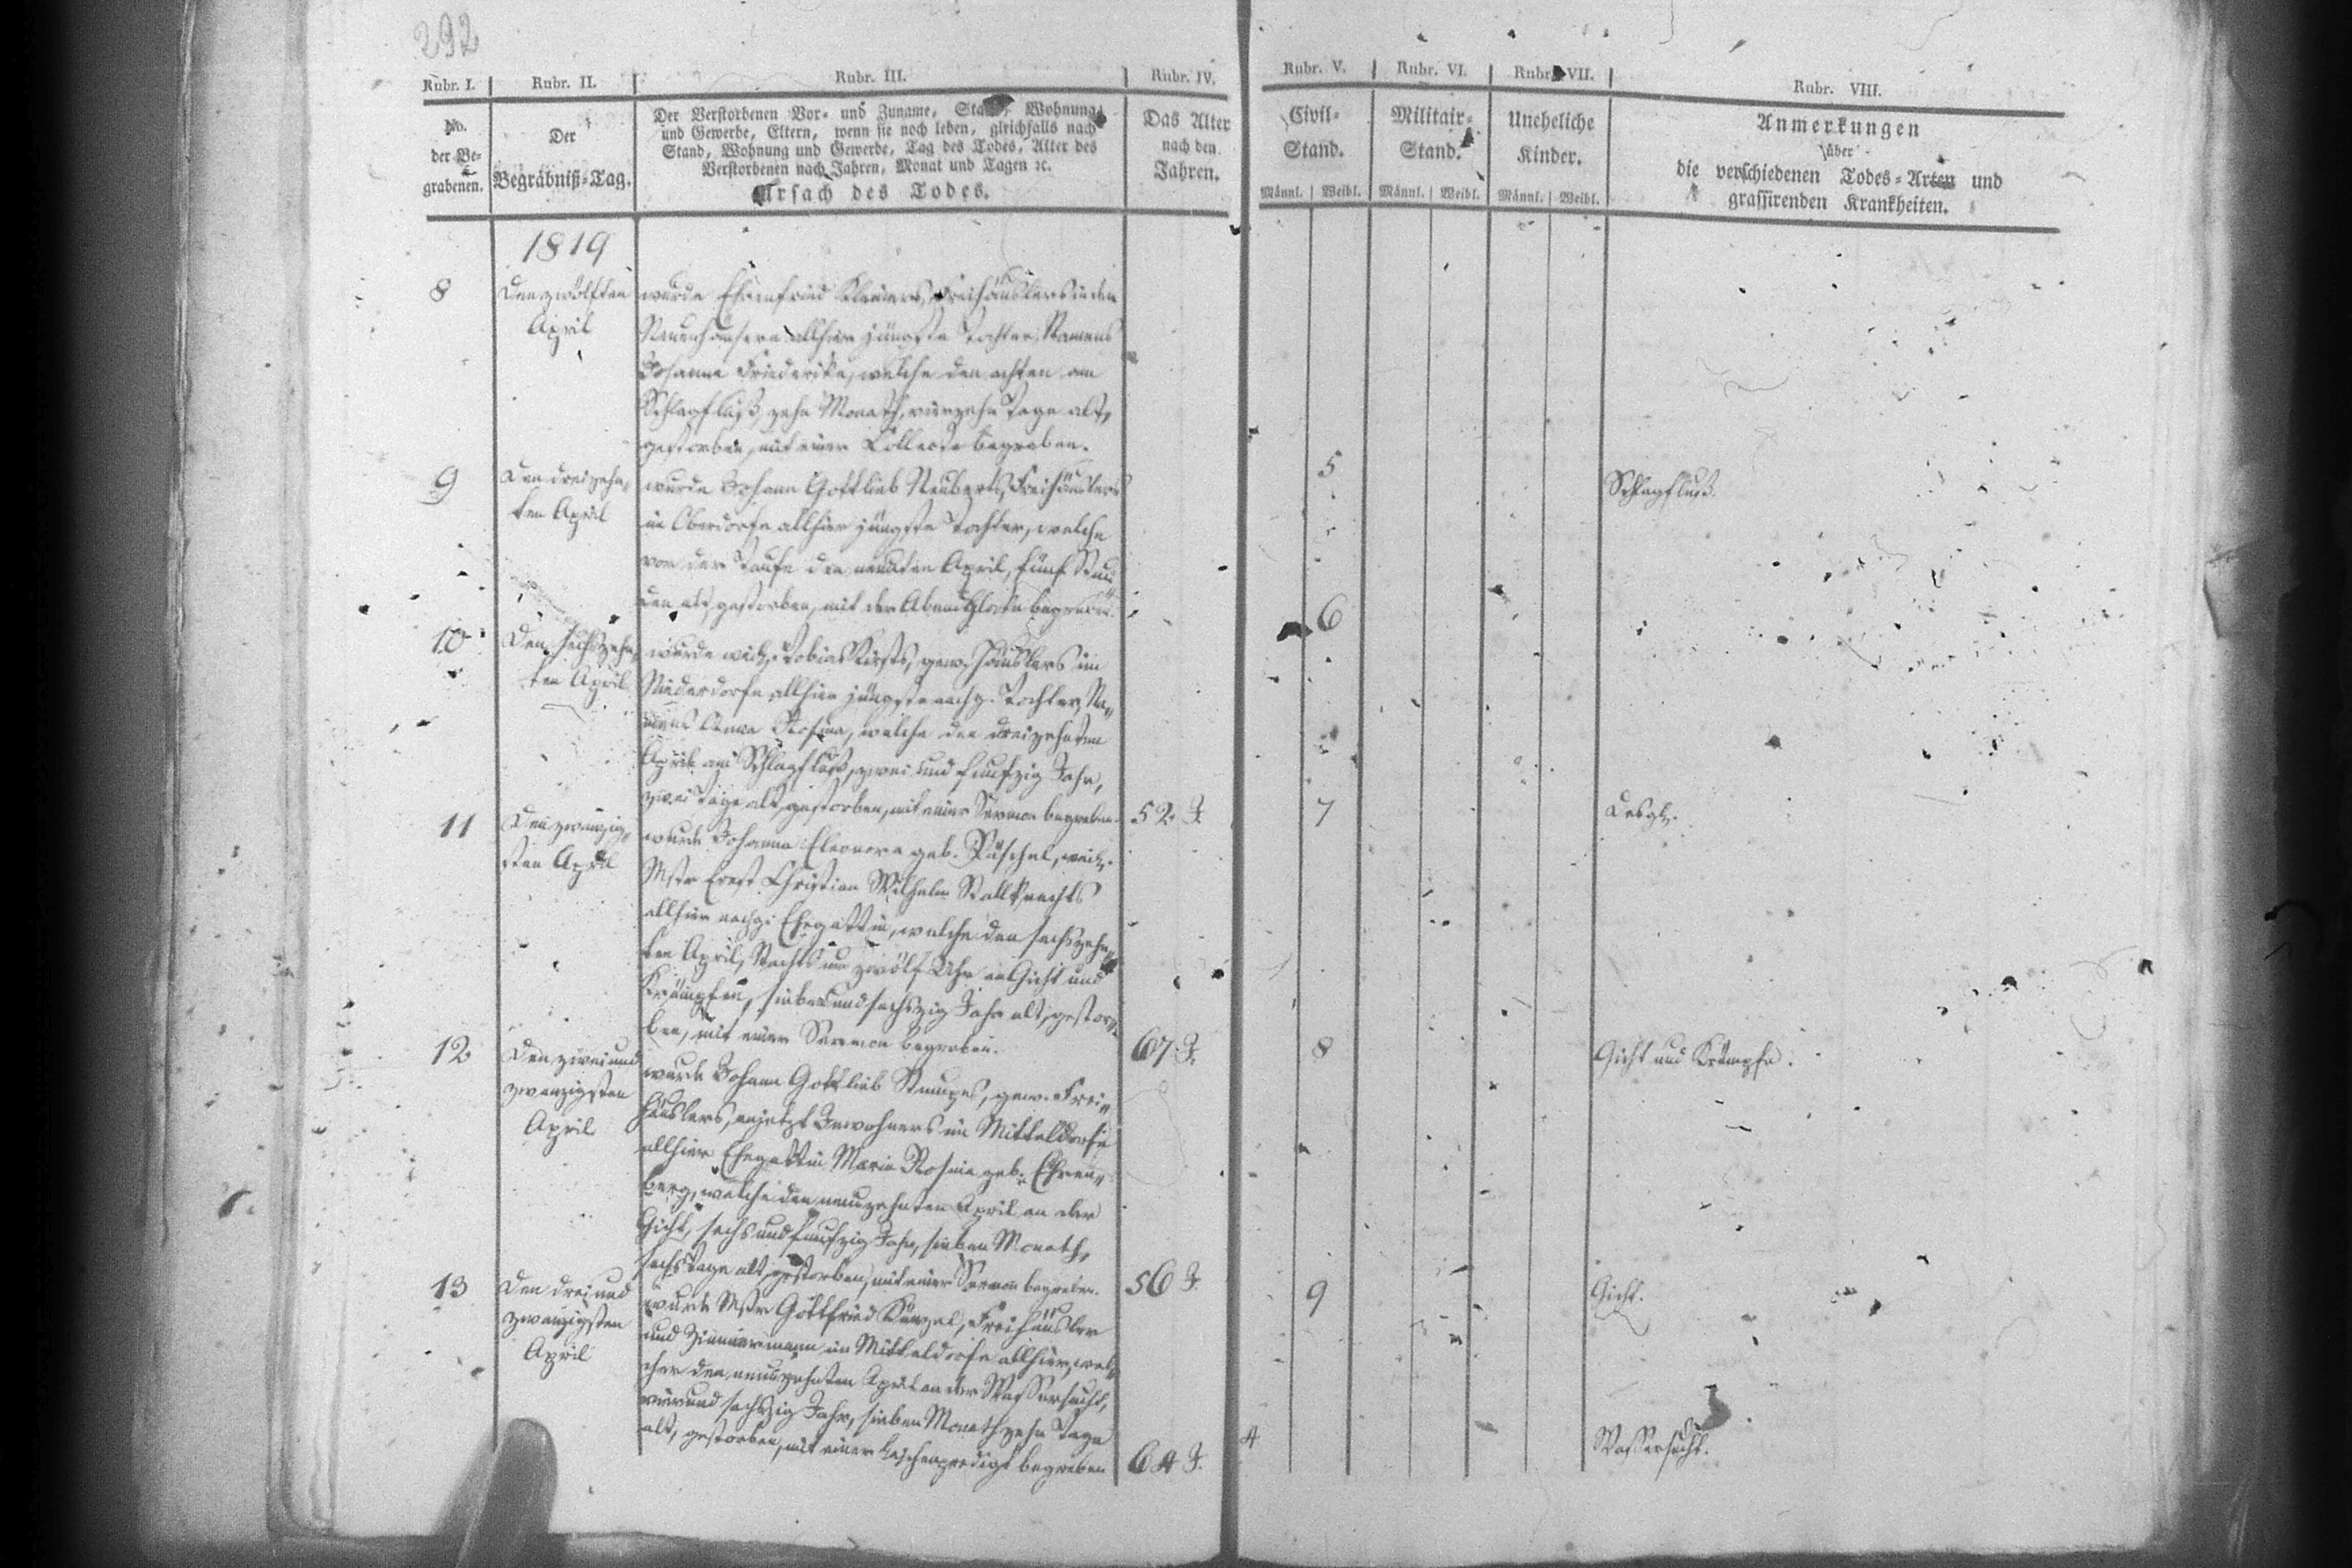 292
Rubr. I. Rubr. II. Rubr. III. Rubr. IV. Rubr. V. Rubr. VI. Rubr. VII. Rubr. VIII.
No.
der Be-
grabenen.
Der
Begräbniß-Tag.
Der Verstorbenen Vor- und Zuname, Stand, Wohnung
und Gewerbe, Eltern, wenn sie noch leben, gleichfalls nach
Stand, Wohnung und Gewerbe, Tag des Todes, Alter des
Verstorbenen nach Jahren, Monat und Tagen ꝛc.
Ursach des Todes.
Das Alter
nach den
Jahren.
Civil-
Stand.
Männl. Weibl.
Militair-
Stand.
Männl. Weibl.
Uneheliche
Kinder.
Männl. Weibl.
Anmerkungen
über
die verschiedenen Todes-Arten und
grassirenden Krankheiten.
1819
8
Den zwölften
April
wurde Ehrenfried Freihäuslers in den
Neuenhäusern allhier jüngste Tochter, Namens
Johanne Friederike, welche den achten am
Schlagfluß, zehn Monath, vierzehn Tage alt,
gestorben, mit einer Collecte begraben.
5
Schlagfluß.
9
Den dreizehn„
ten April
wurde Johann Gottlieb Neuberts, Freihäuslers
in Oberdorfe allhier jüngste Tochter, welche
vor der Taufe den neunten April, fünf Stun„
den alt, gestorben, mit der Abendglocke begraben.
6
10
Den sechszehn„
ten April
wurde weil. Tobias gew. Häuslers im
Niederdorfe allhier jüngste nachg. Tochter, Na„
mens Anna Rosina, welche den dreizehnten
April am Schlagfluß, zwei und funfzig Jahr,
zwei Tage alt, gestorben, mit einer Sermon begraben.
52 J.
7
Desgl.
11
Den zwanzig„
sten April
wurde Johanne Eleonore geb. Püschel, weil.
Mstr Ernst Christian Wilhelm Stallknechts
allhier nachg. Ehegattin, welche den sechszehn„
ten April, Nachts um zwölf Uhr an Gicht und
Krämpfen, sieben und sechszig Jahr alt, gestor„
ben, mit einer Sermon begraben.
67 J.
8
Gicht und Krämpfe.
12
Den zwei und
zwanzigsten
April
wurde Johann Gottlieb gew. Frei„
häuslers, anjetzt Inwohners im Mitteldorfe
allhier Ehegattin Maria Rosina geb. Ehren„
berg, welche den neunzehnten April an der
Gicht, sechs und funfzig Jahr, sieben Monath,
sechs Tage alt, gestorben, mit einer Sermon begraben.
56 J.
9
Gicht.
13
Den drei und
zwanzigsten
April
wurde Mstr Gottfried Künzel, Freihäusler
und Zimmermann im Mitteldorfe allhier, wel„
cher den neunzehnten April an der Wassersucht,
vier und sechszig Jahr, sieben Monath, zehn Tage
alt, gestorben, mit einer Leichenpredigt begraben
64 J.
4
Wassersucht.